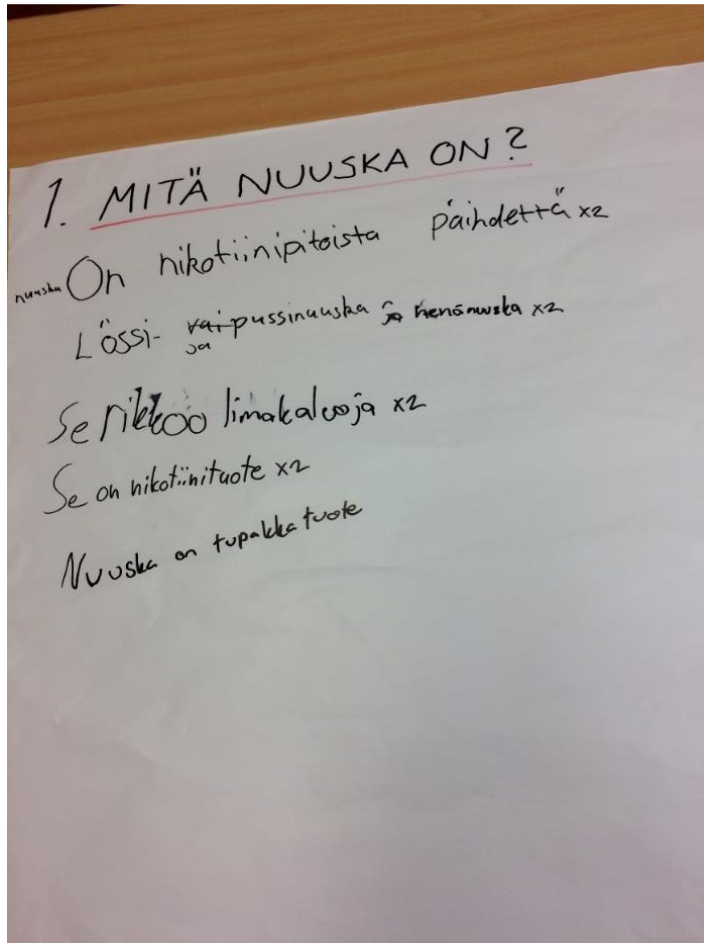 1. MITÄ NUUSKA ON?
nuuska On nikotiinipitoista päihdettä x2
Lössi- ja pussinuuska ja nenänuuska x2
Se rikkoo limakalvoja x2
Se on nikotiinituote x2
Nuuska on tupakkatuote